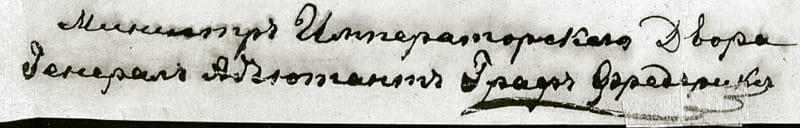 Министръ Императорскаго Двора
Генералъ Адъютантъ Графъ Фредериксъ